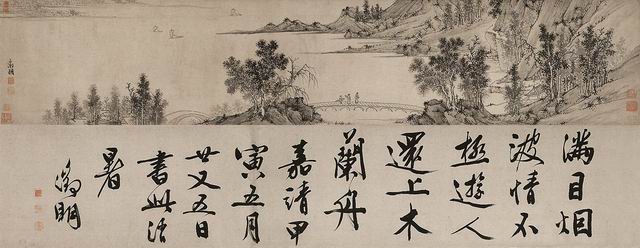 滿目烟
波情不
極遊人
還上木
蘭舟
嘉靖甲
寅五月
廿又五日
書此消
暑
徵明